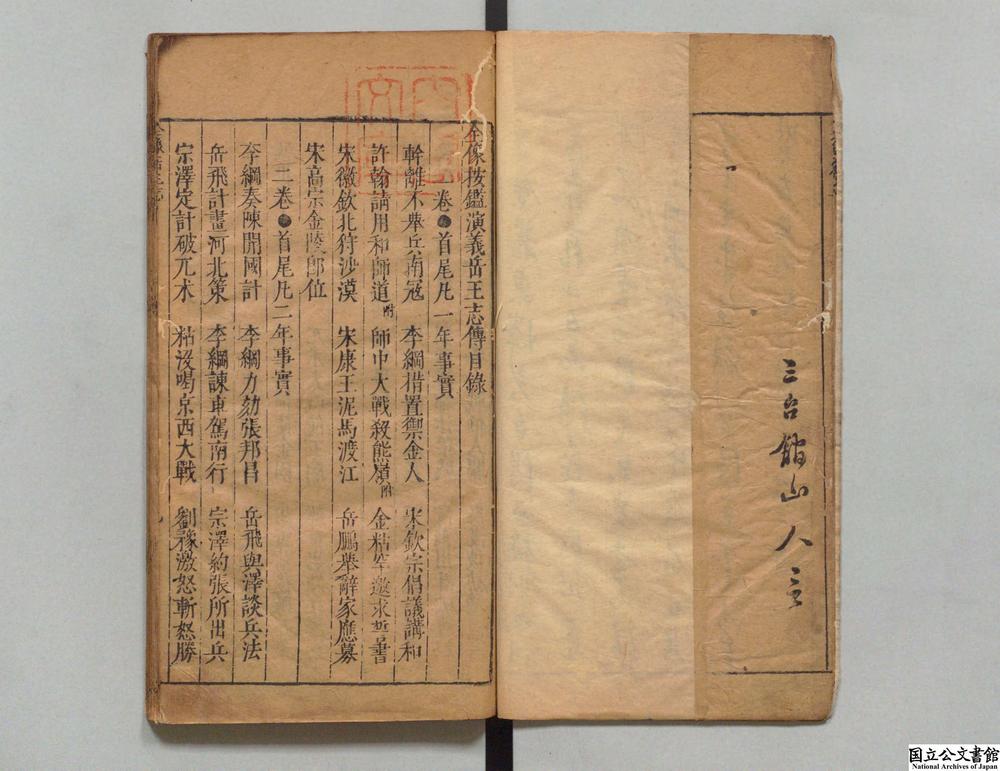 三台館山人言
全像按鑑演義岳王志傳目錄
卷●首尾凡一年事實
斡離不舉兵南冦 李綱措置禦金人 宋欽宗倡議講和
許翰請用和師道附 師中大戰殺熊嶺附 金粘罕邀求誓書
宋徽欽北狩沙漠 宋康王泥馬渡江 岳鵬舉辭家應募
宋高宗金陵即位
二卷●首尾凡二年事實
李綱奏陳開國計 李綱力劾張邦昌 岳飛與澤談兵法
岳飛計畫河北策 李綱諫車駕南行 宗澤約張所出兵
宗澤定計破兀术 粘沒喝京西大戰 劉豫激怒斬勝
国立公文書館
National Archives of Japan